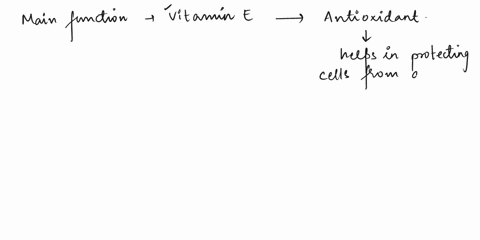 Main function → Vitamin E → Antioxidant.
↓
helps in protecting
cells from o